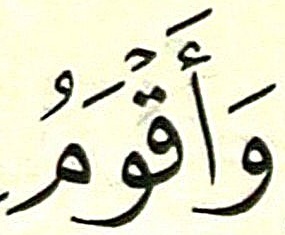 وَأَقْوَمُ